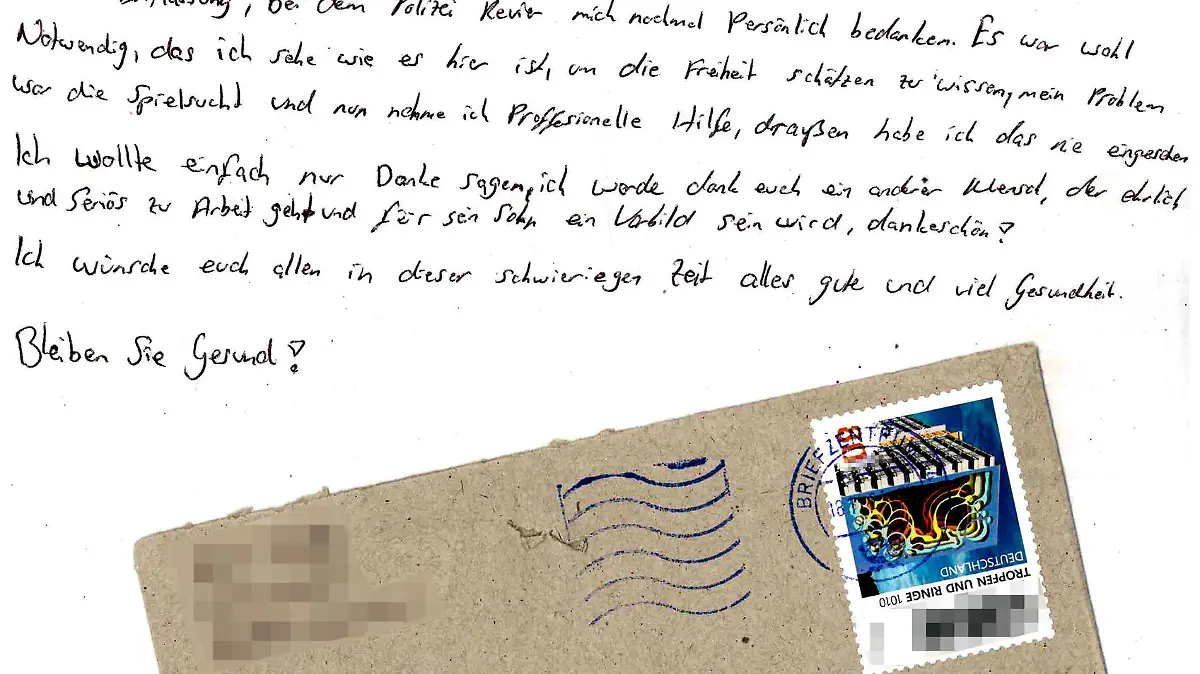 bei dem Polizei Revier mich nochmal Persönlich bedanken. Es war wohl
Notwendig, das ich sehe wie es hier ist, um die Freiheit schätzen zu wissen, mein Problem
war die Spielsucht und nun nehme ich Proffesionelle Hilfe, draußen habe ich das nie eingesehen
Ich wollte einfach nur Danke sagen, ich werde dank euch ein anderer Mensch, der ehrlich
und Seriös zu Arbeit geht und für sein Sohn ein Vorbild sein wird, dankeschön!
Ich wünsche euch allen in dieser schwieriegen Zeit alles gute und viel Gesundheit.
Bleiben Sie Gesund!
BRIEFZENTR
18.
DEUTSCHLAND
TROPFEN UND RINGE 1010